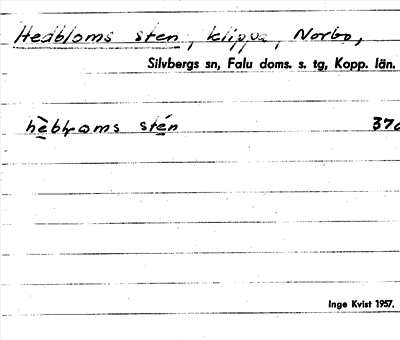 Hedbloms sten, klippa, Norbo,
Silvbergs sn, Falu doms. s. tg, Kopp. län.
sten
Inge Kvist 1957.